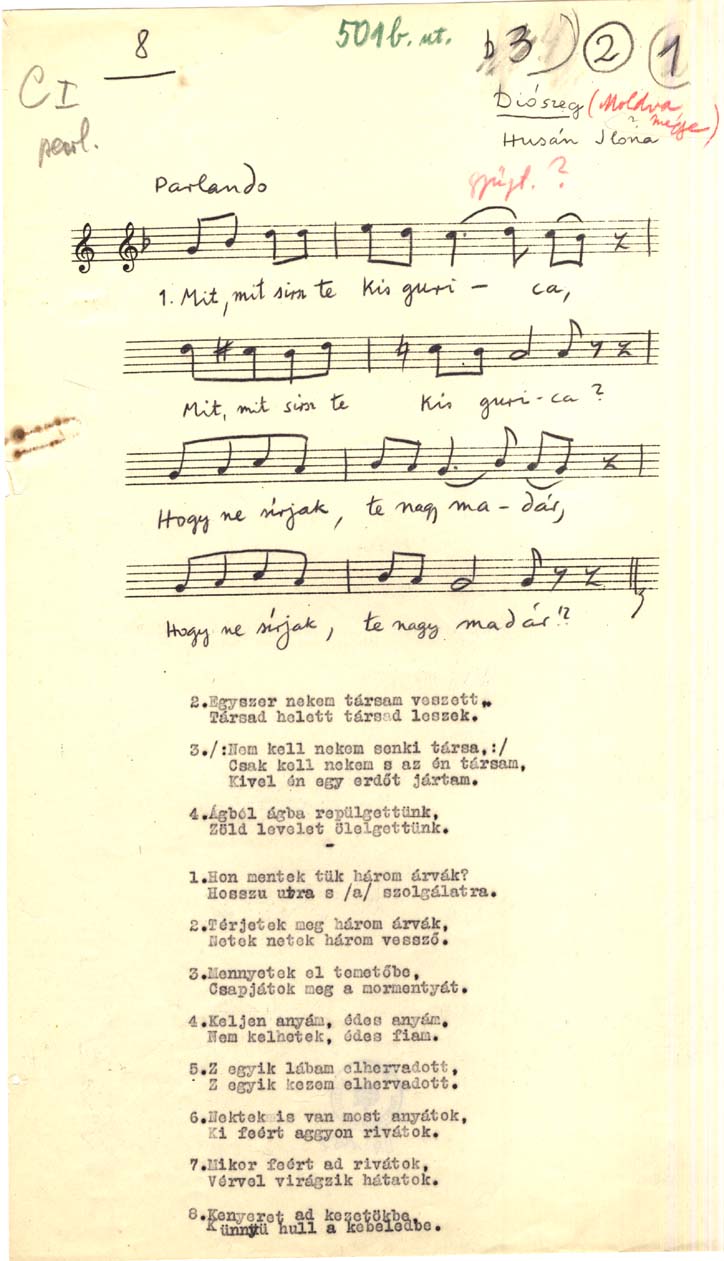 8
501b. nt.
b3
2
1
CI
Diószeg (Moldva megye)
?
Husán Ilona
Parlando
gyűjt. ?
1. Mit, mit sirsz te kis guri - ca,
Mit, mit sirsz te kis guri-ca?
Hogy ne sírjak, te nagy ma-dár,
Hogy ne sírjak, te nagy madár!?
2.Egyszer nekem társam veszett„
Társad helett társad leszek.
3./:Nem kell nekem senki társa,:/
Csak kell nekem s az én társam,
Kivel én egy erdőt jártam.
4.Ágból ágba repülgettünk,
Zöld levelet ölelgettünk.
-
1.Hon mentek tük három árvák?
Hosszu utra s /a/ szolgálatra.
2.Térjetek meg három árvák,
Netek netek három vessző.
3.Mennyetek el temetőbe,
Csapjátok meg a mormentyát.
4.Keljen anyám, édes anyám,
Nem kelhetek, édes fiam.
5.Z egyik lábam elhervadott,
Z egyik kezem elhervadott.
6.Nektek is van most anyátok,
Ki feért aggyon rivátok.
7.Mikor feért ad rivátok,
Vérvel virágzik hátatok.
8.Kenyeret ad kezetökbe,
Künnyü hull a kebeledbe.